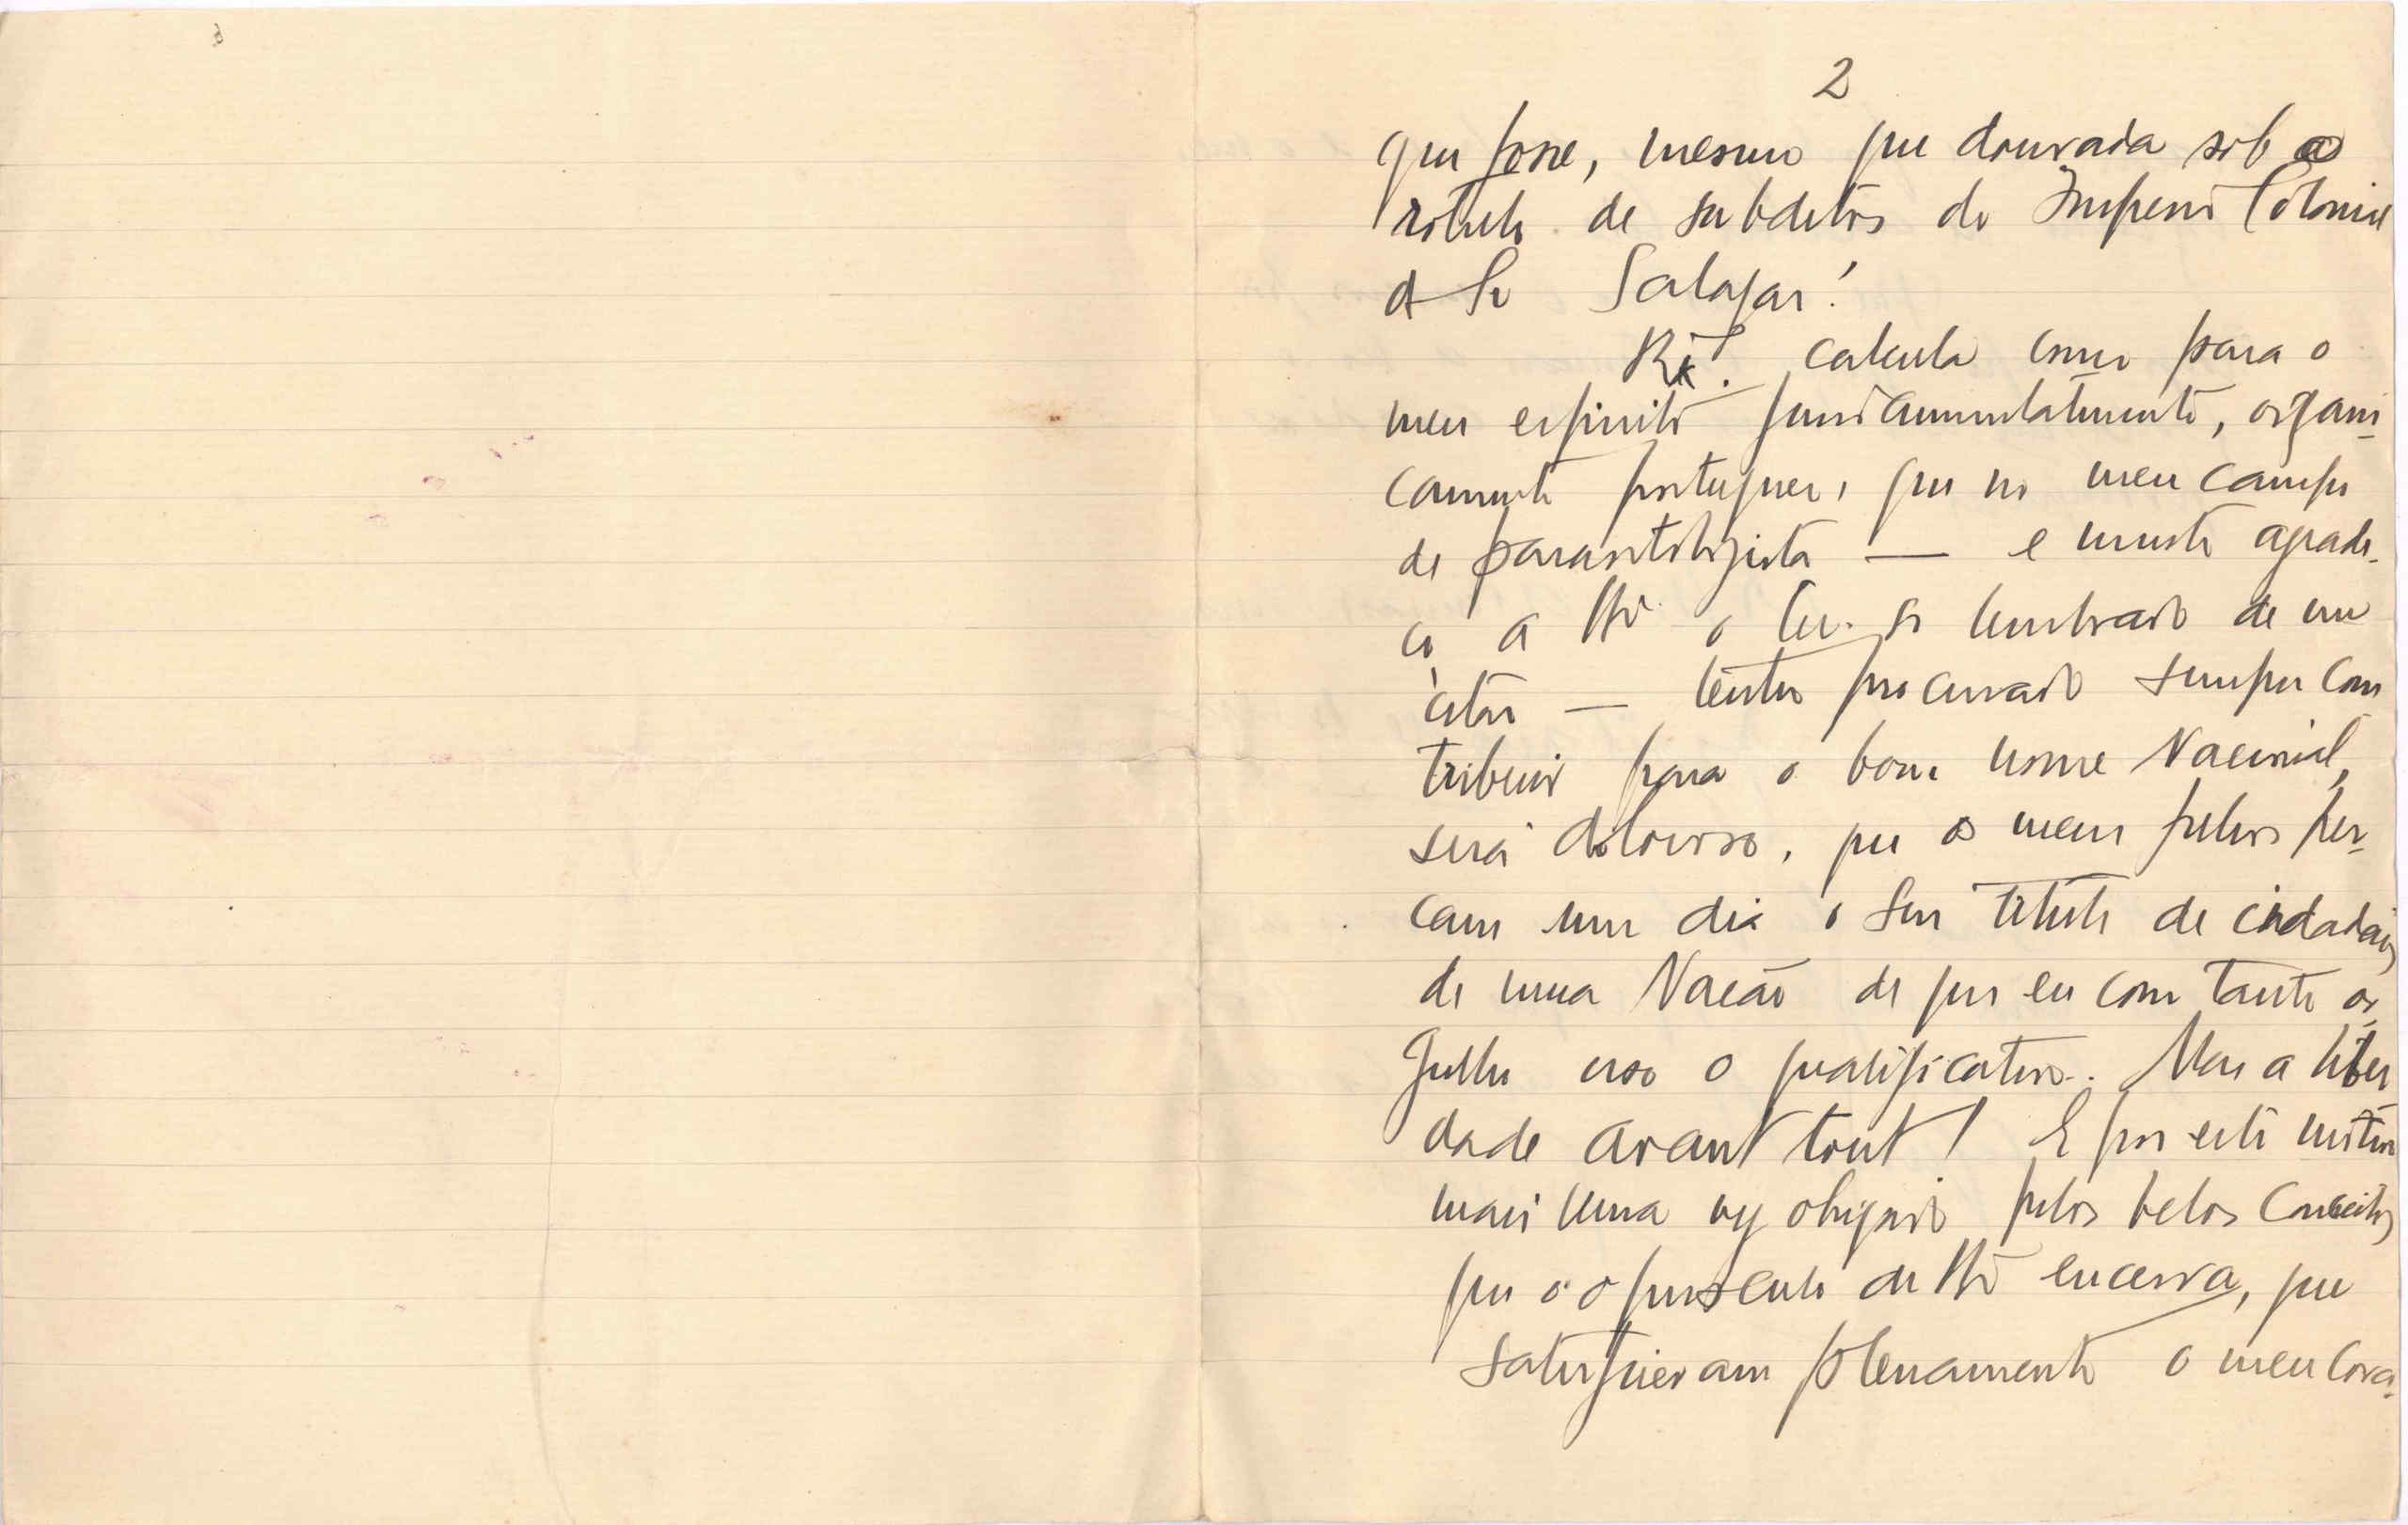 2
que fosse, mesmo que dourada sob o
rotulo de subditos do Imperio Colonial
d Sr Salazar!
calcula como para o
meu espirito fundamentalmente, organi-
camente portuguez, que no meu campo
de parasitologista — e muito agrade-
ço a o ter-se lembrado de me
citar — tenho procurado sempre con
tribuir para o bom nome Nacional,
será doloroso, que os meus filhos per-
cam um dia o seu titulo de cidadãos
de uma Nação de que eu com tanto or-
gulho uso o qualificativo. Mas a liber
dade avant tout! E por este motivo
mais uma vez obrigado pelos belos conceitos
que o opusculo de encerra, que
satisfizeram plenamente o meu cora-